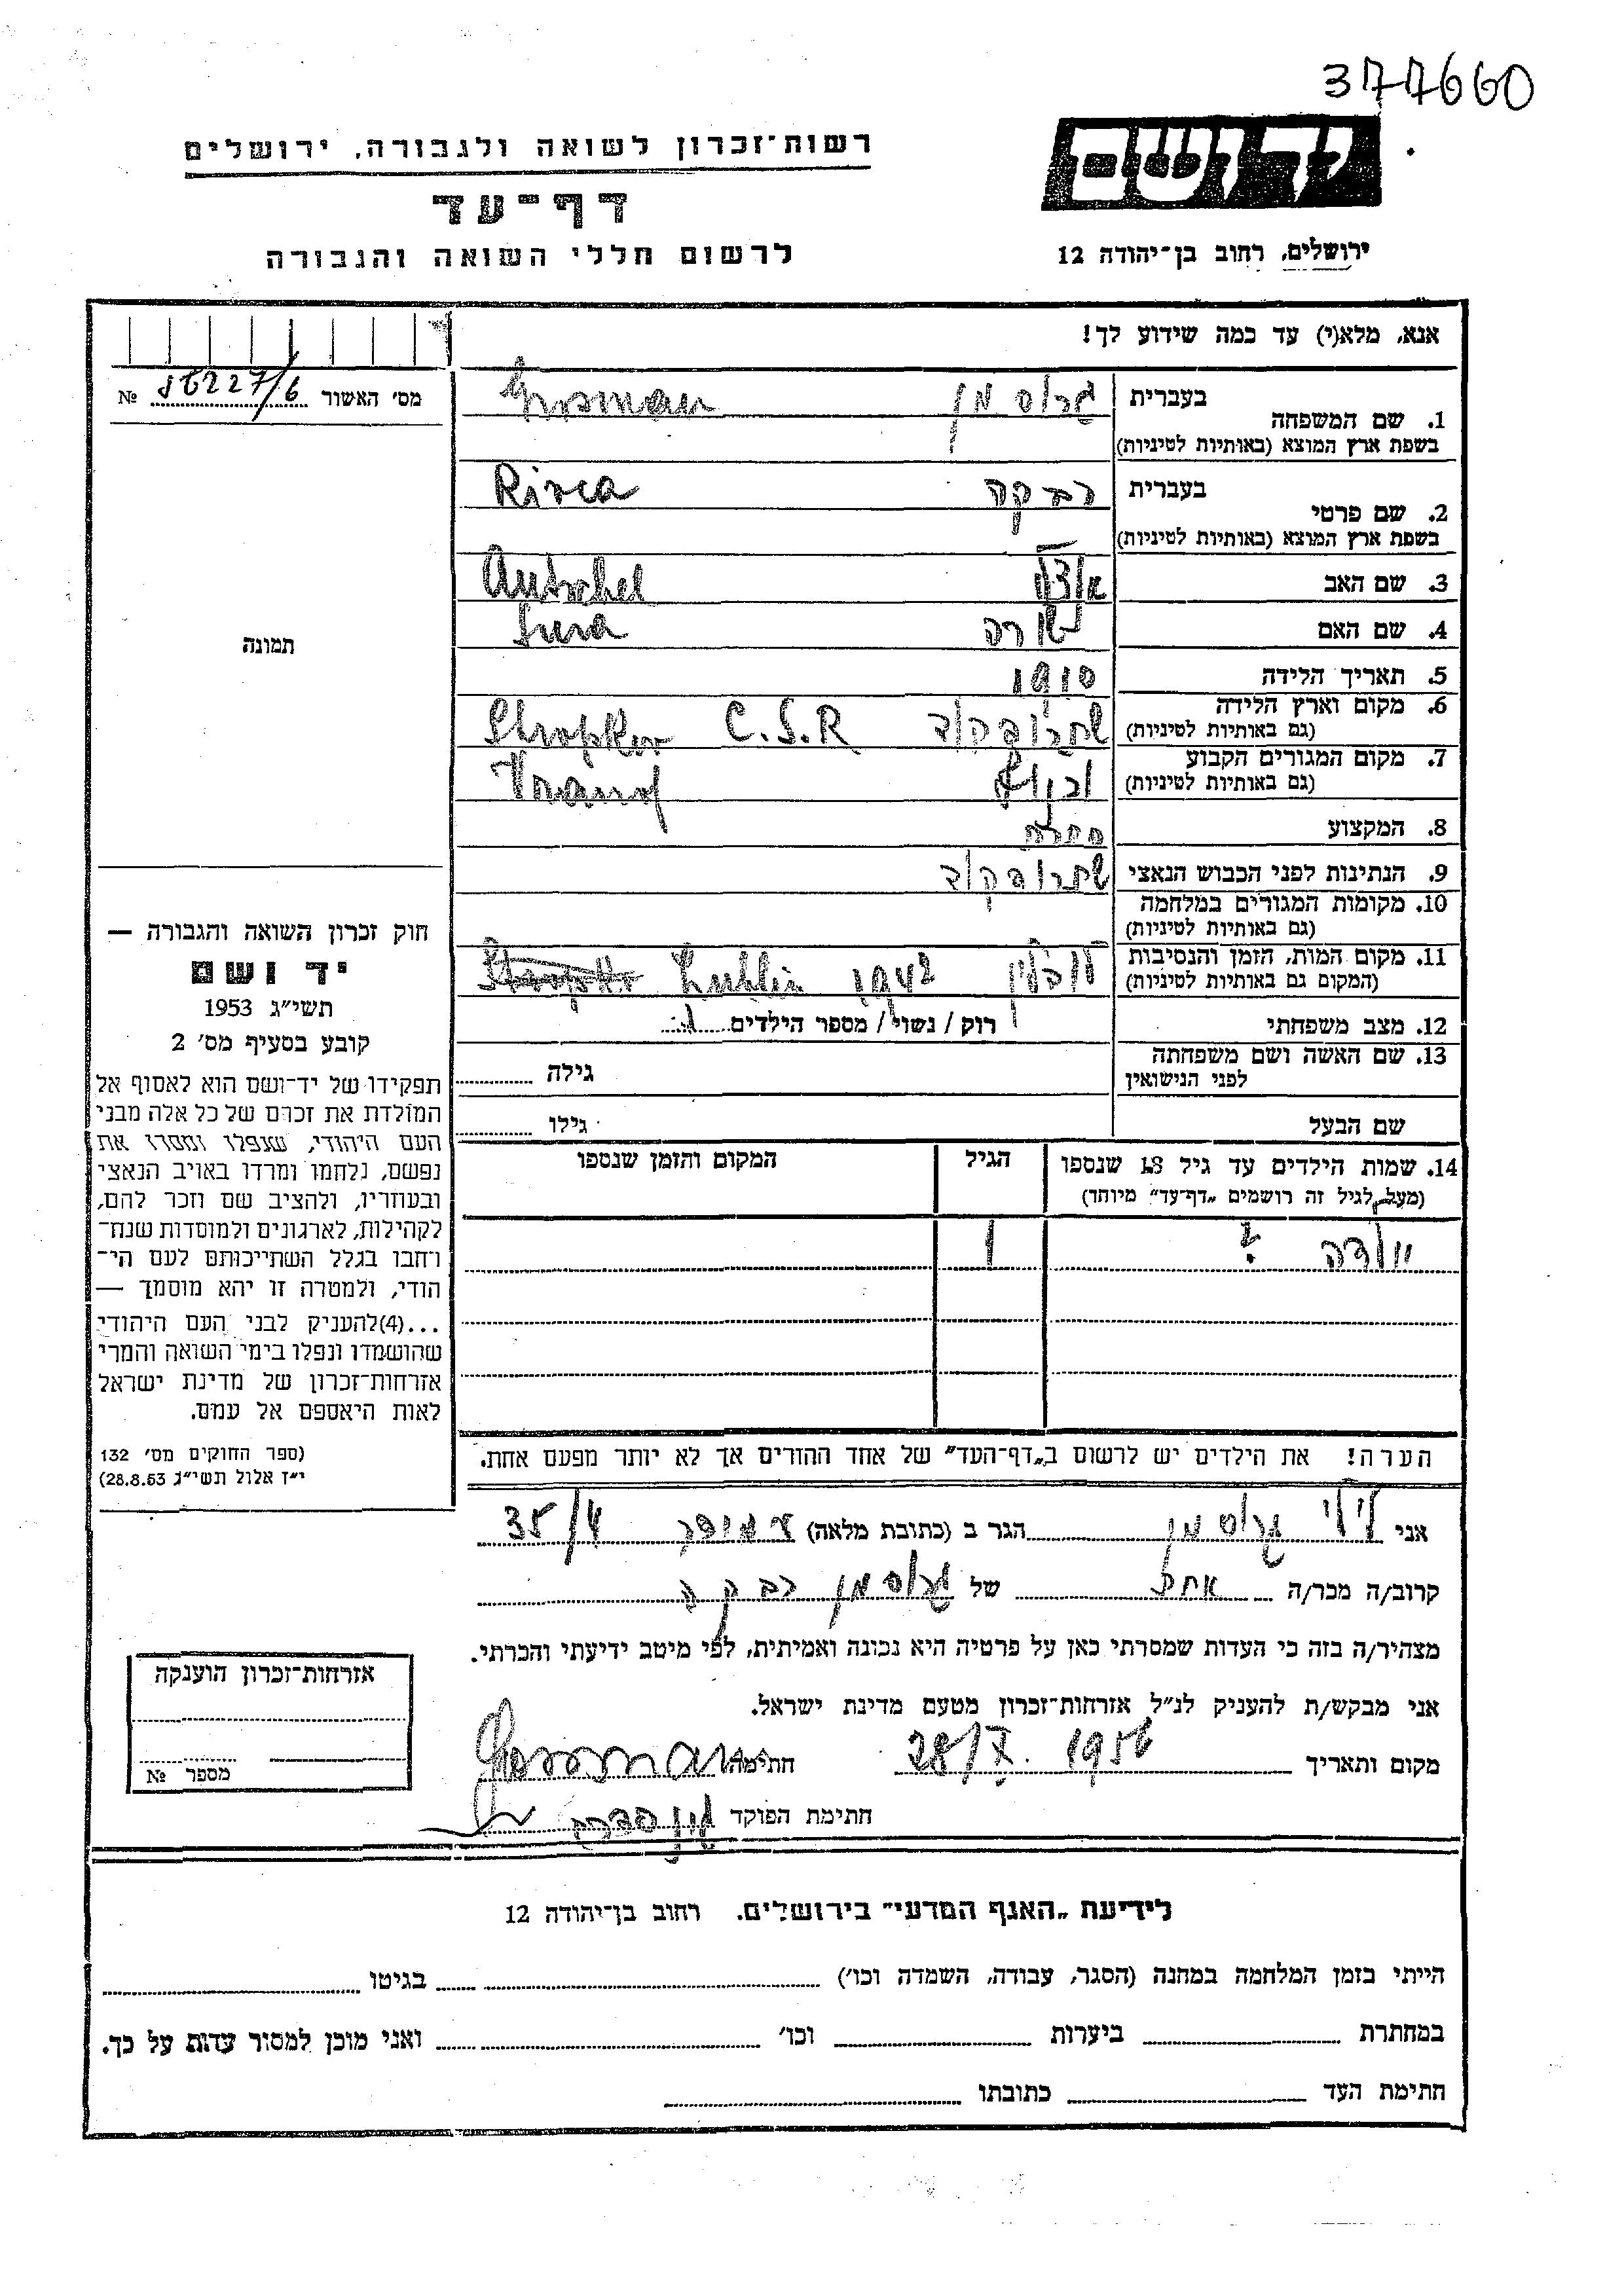 377660
יד ושם
רשות־זכרון לשואה ולגבורה, ירושלים
דף־עד
לרשום חללי השואה והגבורה
ירושלים, רחוב בן־יהודה 12
אנא, מלא(י) עד כמה שידוע לך!
מס' האשור 16227/6 №
תמונה
1. שם המשפחה בעברית גרוסמן Grosman
בשפת ארץ המוצא (באותיות לטיניות)
2. שם פרטי בעברית רבקה Rivca
בשפת ארץ המוצא (באותיות לטיניות)
3. שם האב
4. שם האם שרה Sura
5. תאריך הלידה 1910
6. מקום וארץ הלידה C.S.R Stropkov
(גם באותיות לטיניות)
7. מקום המגורים הקבוע
(גם באותיות לטיניות)
8. המקצוע
9. הנתינות לפני הכבוש הנאצי
10. מקומות המגורים במלחמה
(גם באותיות לטיניות)
11. מקום המות, הזמן והנסיבות לובלין 1942 Lublin
(המקום גם באותיות לטיניות)
12. מצב משפחתי רוק / נשוי / מספר הילדים 1
13. שם האשה ושם משפחתה לפני הנישואין גילה
שם הבעל גילו
14. שמות הילדים עד גיל 18 שנספו הגיל המקום והזמן שנספו
(מעל לגיל זה רושמים „דף־עד” מיוחד)
ילדה ? 1
הערה! את הילדים יש לרשום ב„דף־העד” של אחד ההורים אך לא יותר מפעם אחת.
חוק זכרון השואה והגבורה —
יד ושם
תשי״ג 1953
קובע בסעיף מס' 2
תפקידו של יד־ושם הוא לאסוף אל
המולדת את זכרם של כל אלה מבני
העם היהודי, שנפלו ומסרו את
נפשם, נלחמו ומרדו באויב הנאצי
ובעוזריו, ולהציב שם וזכר להם,
לקהילות, לארגונים ולמוסדות שנח־
רחבו בגלל השתייכותם לעם הי־
הודי, ולמטרה זו יהא מוסמך —
...(4)להעניק לבני העם היהודי
שהושמדו ונפלו בימי השואה והמרי
אזרחות־זכרון של מדינת ישראל
לאות היאספם אל עמם.
(ספר החוקים מס' 132
י״ז אלול תשי״ג 28.8.53)
אני לילי גרוסמן הגר ב (כתובת מלאה) 35/4
קרוב/ה מכר/ה אחות של גרוסמן רבקה
מצהיר/ה בזה כי העדות שמסרתי כאן על פרטיה היא נכונה ואמיתית, לפי מיטב ידיעתי והכרתי.
אני מבקש/ת להעניק לנ״ל אזרחות־זכרון מטעם מדינת ישראל.
מקום ותאריך 28/X. 1956 חתימה Grosman
חתימת הפוקד
אזרחות־זכרון הוענקה
מספר №
לידיעת „האגף המדעי” בירושלים. רחוב בן־יהודה 12
הייתי בזמן המלחמה במחנה (הסגר, עבודה, השמדה וכו') בגיטו
במחתרת ביערות וכו' ואני מוכן למסור עדות על כך.
חתימת העד כתובתו